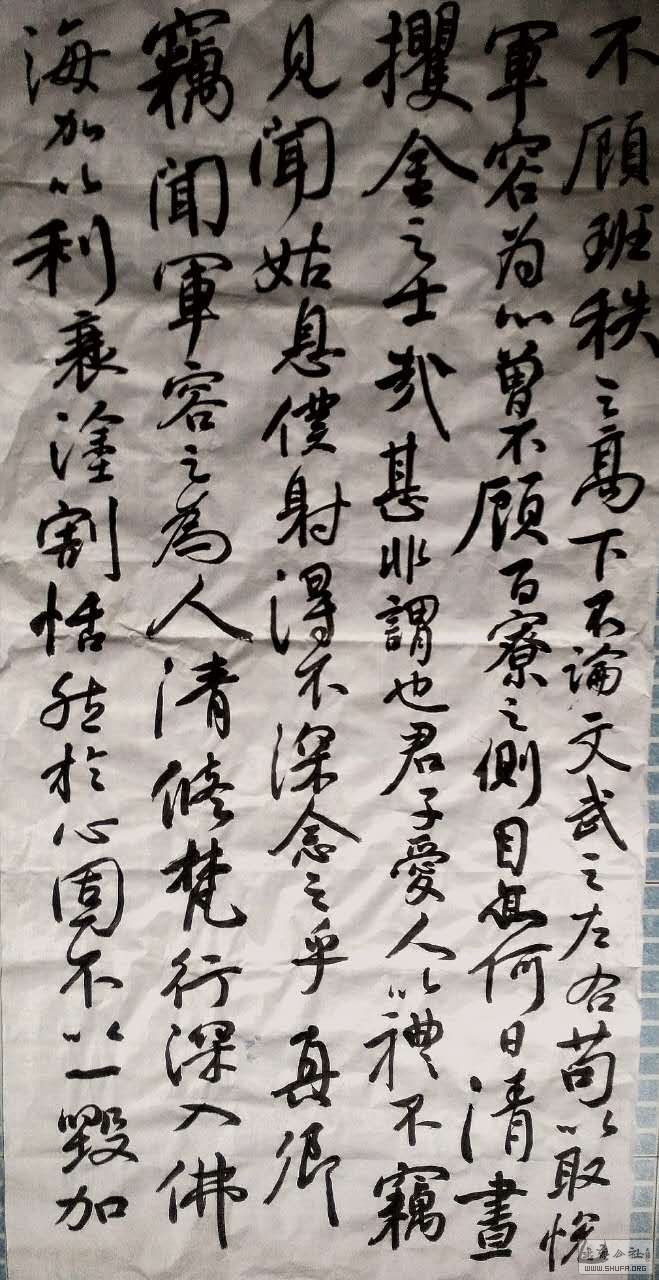 不顾班秩之高下不論文武之左右苟以取悦
軍容为心曾不顾百寮之側目亦何異清晝
攫金之士哉甚非謂也君子愛人以禮不竊
見聞姑息僕射得不深念之乎真卿
竊聞軍容之為人清修梵行深入佛
海加以利衰塗割恬然於心固不以一毁加
WWW.SHUFA.ORG